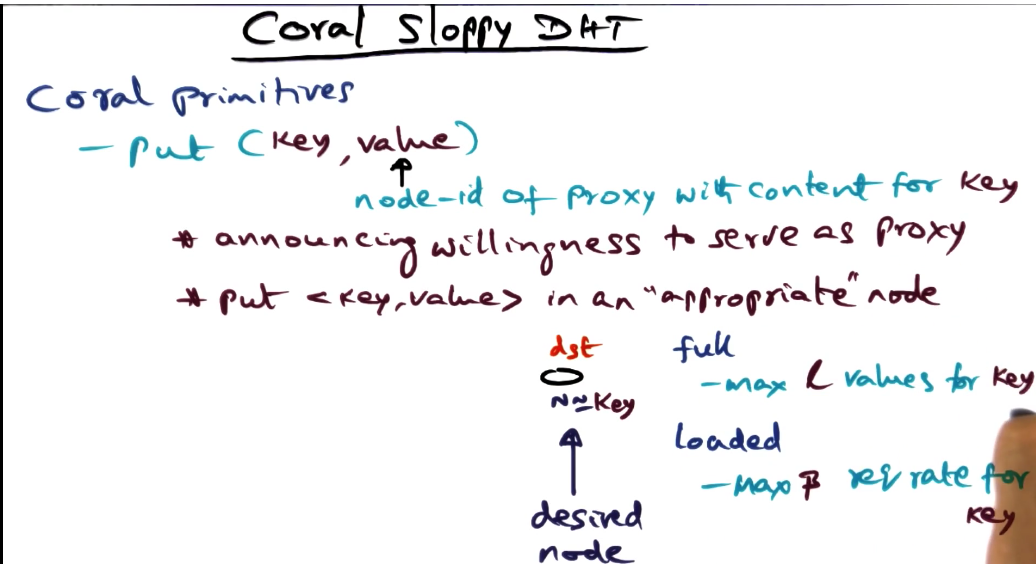 Coral Sloppy DHT
Coral primitives
- put (key, value)
node-id of proxy with content for key
* announcing willingness to serve as proxy
* put <key, value> in an "appropriate" node
dst
N≈key
desired
node
full
- max l values for key
loaded
- max β req rate for
key